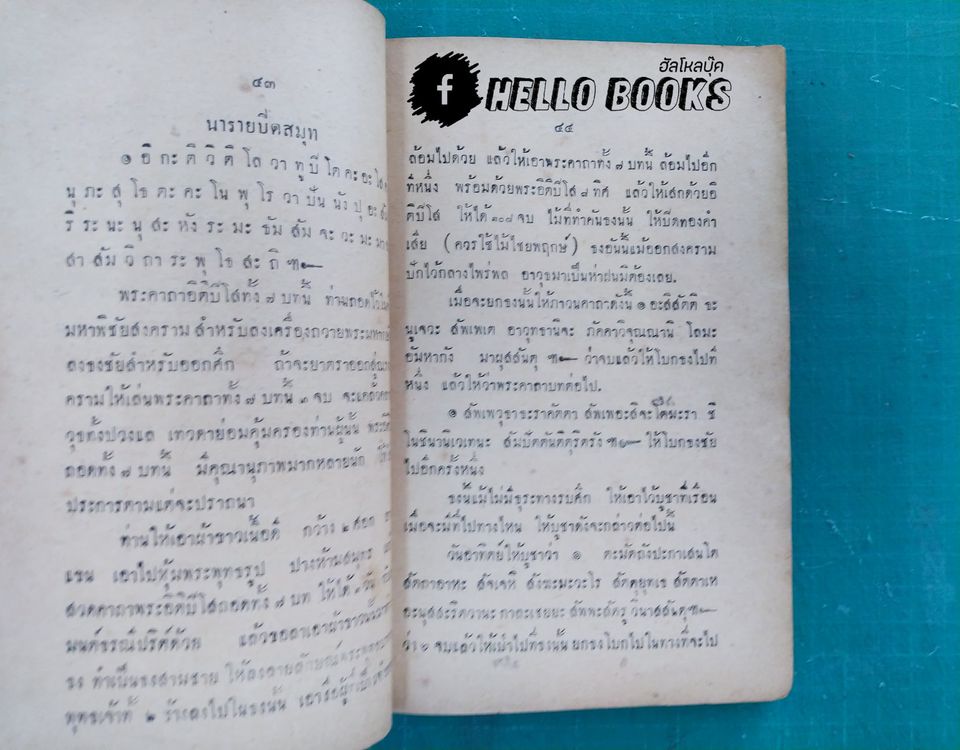 ๔๓
นารายบีดสมุท
๑ อิ กะ ติ วิ ติ โส วา ทู บี โต คะ อะ โส
นุ ภะ สุ โธ ตะ คะ โน พุ โร วา ปัน นัง ปุ อะ
ริ ระ นะ นุ สะ หัง ระ มะ ธัม สัม จะ วะ มะ
สา สัม วิ ถา ระ พุ โธ สะ ถิ ฯ๛
พระคาถาอิติบีโสทั้ง ๗ บทนี้ ท่านถอดไว้
มหาพิชัยสงคราม สำหรับลงเครื่องถวายพระมหา
ลงธงชัยสำหรับออกศึก ถ้าจะยาตราออกสู่
ครามให้เล่นพระคาถาทั้ง ๗ บทนี้ ๓ จบ จะแคล้วคลาด
วุธทั้งปวงแล เทวดาย่อมคุ้มครองท่านผู้นั้น
ถอดทั้ง ๗ บทนี้ มีคุณานุภาพมากหลายนัก
ประการตามแต่จะปราถนา
ท่านให้เอาผ้าขาวเนื้อดี กว้าง ๒ ศอก
แขน เอาไปหุ้มพระพุทธรูป ปางห้ามสมุทร
สวดคาถาพระอิติบีโสถอดทั้ง ๗ บท ให้ได้ ๓ วัน
มนต์ธรณีปริศด้วย แล้วขอลาเอาผ้าขาวนั้น
ธง ทำเป็นธงสามชาย ให้ลงลายลักษณ์พระพุทธ
พุทธเจ้าทั้ง ๒ ร้างลงไปในธงนั้น เอาชื่อผู้
ฮัลโหลบุ๊ค
f HELLO BOOKS
๔๔
ล้อมไปด้วย แล้วให้เอาพระคาถาทั้ง ๗ บทนี้ ล้อมไปอีก
ที่หนึ่ง พร้อมด้วยพระอิติบีโส ๘ ทิศ แล้วให้เสกด้วยอิ
ติบีโส ให้ได้ ๑๐๘ จบ ไม้ที่ทำคันธงนั้น ให้บีดทองคำ
เสีย ( ควรใช้ไม้ไชยพฤกษ์ ) ธงอันนี้แม้ออกสงคราม
บักไว้กลางไพร่พล อาวุธมาเป็นห่าฝนมิต้องเลย.
เมื่อจะยกธงนั้นให้ภาวนาคาถาดังนี้ ๑ อะสิสัตติ ธะ
นูเจวะ สัพเพเต อาวุทธานิจะ ภัคคาวิจุณณานิ โลมะ
อัมหากัง มาผุสสันตุ ฯ๛ ว่าจบแล้วให้โบกธงไปที่
หนึ่ง แล้วให้ว่าพระคาถาบทต่อไป.
๑ สัพเพวุธาธะราคัตตา สัพเพอะสิจะโตมะรา ชิ
ในชินานิเวเทนะ สัมบัตตันติตุริตรัง ฯ๛ ให้โบกธงชัย
ไปอีกครั้งหนึ่ง
ธงนี้แม้ไม่มีธุระทางรบศึก ให้เอาไว้บูชาที่เรือน
เมื่อจะมีที่ไปทางไหน ให้บูชาดังจะกล่าวต่อไปนี้
วันอาทิตย์ให้บูชาว่า ๑ ตะมัตถังปะกาเสนโต
สัตถาอาหะ สัจเจหิ สังฆะมะวะโร สัตตุยุทเธ สัตตาเห
อะนุสสะริตวานะ กาละเชยยะ สัพพะสัตรู วินาสสันตุฯ๛
ว่า ๖ จบแล้วให้เบ่าไปที่ธงนั้น ยกธงโบกไปในทางที่จะไป